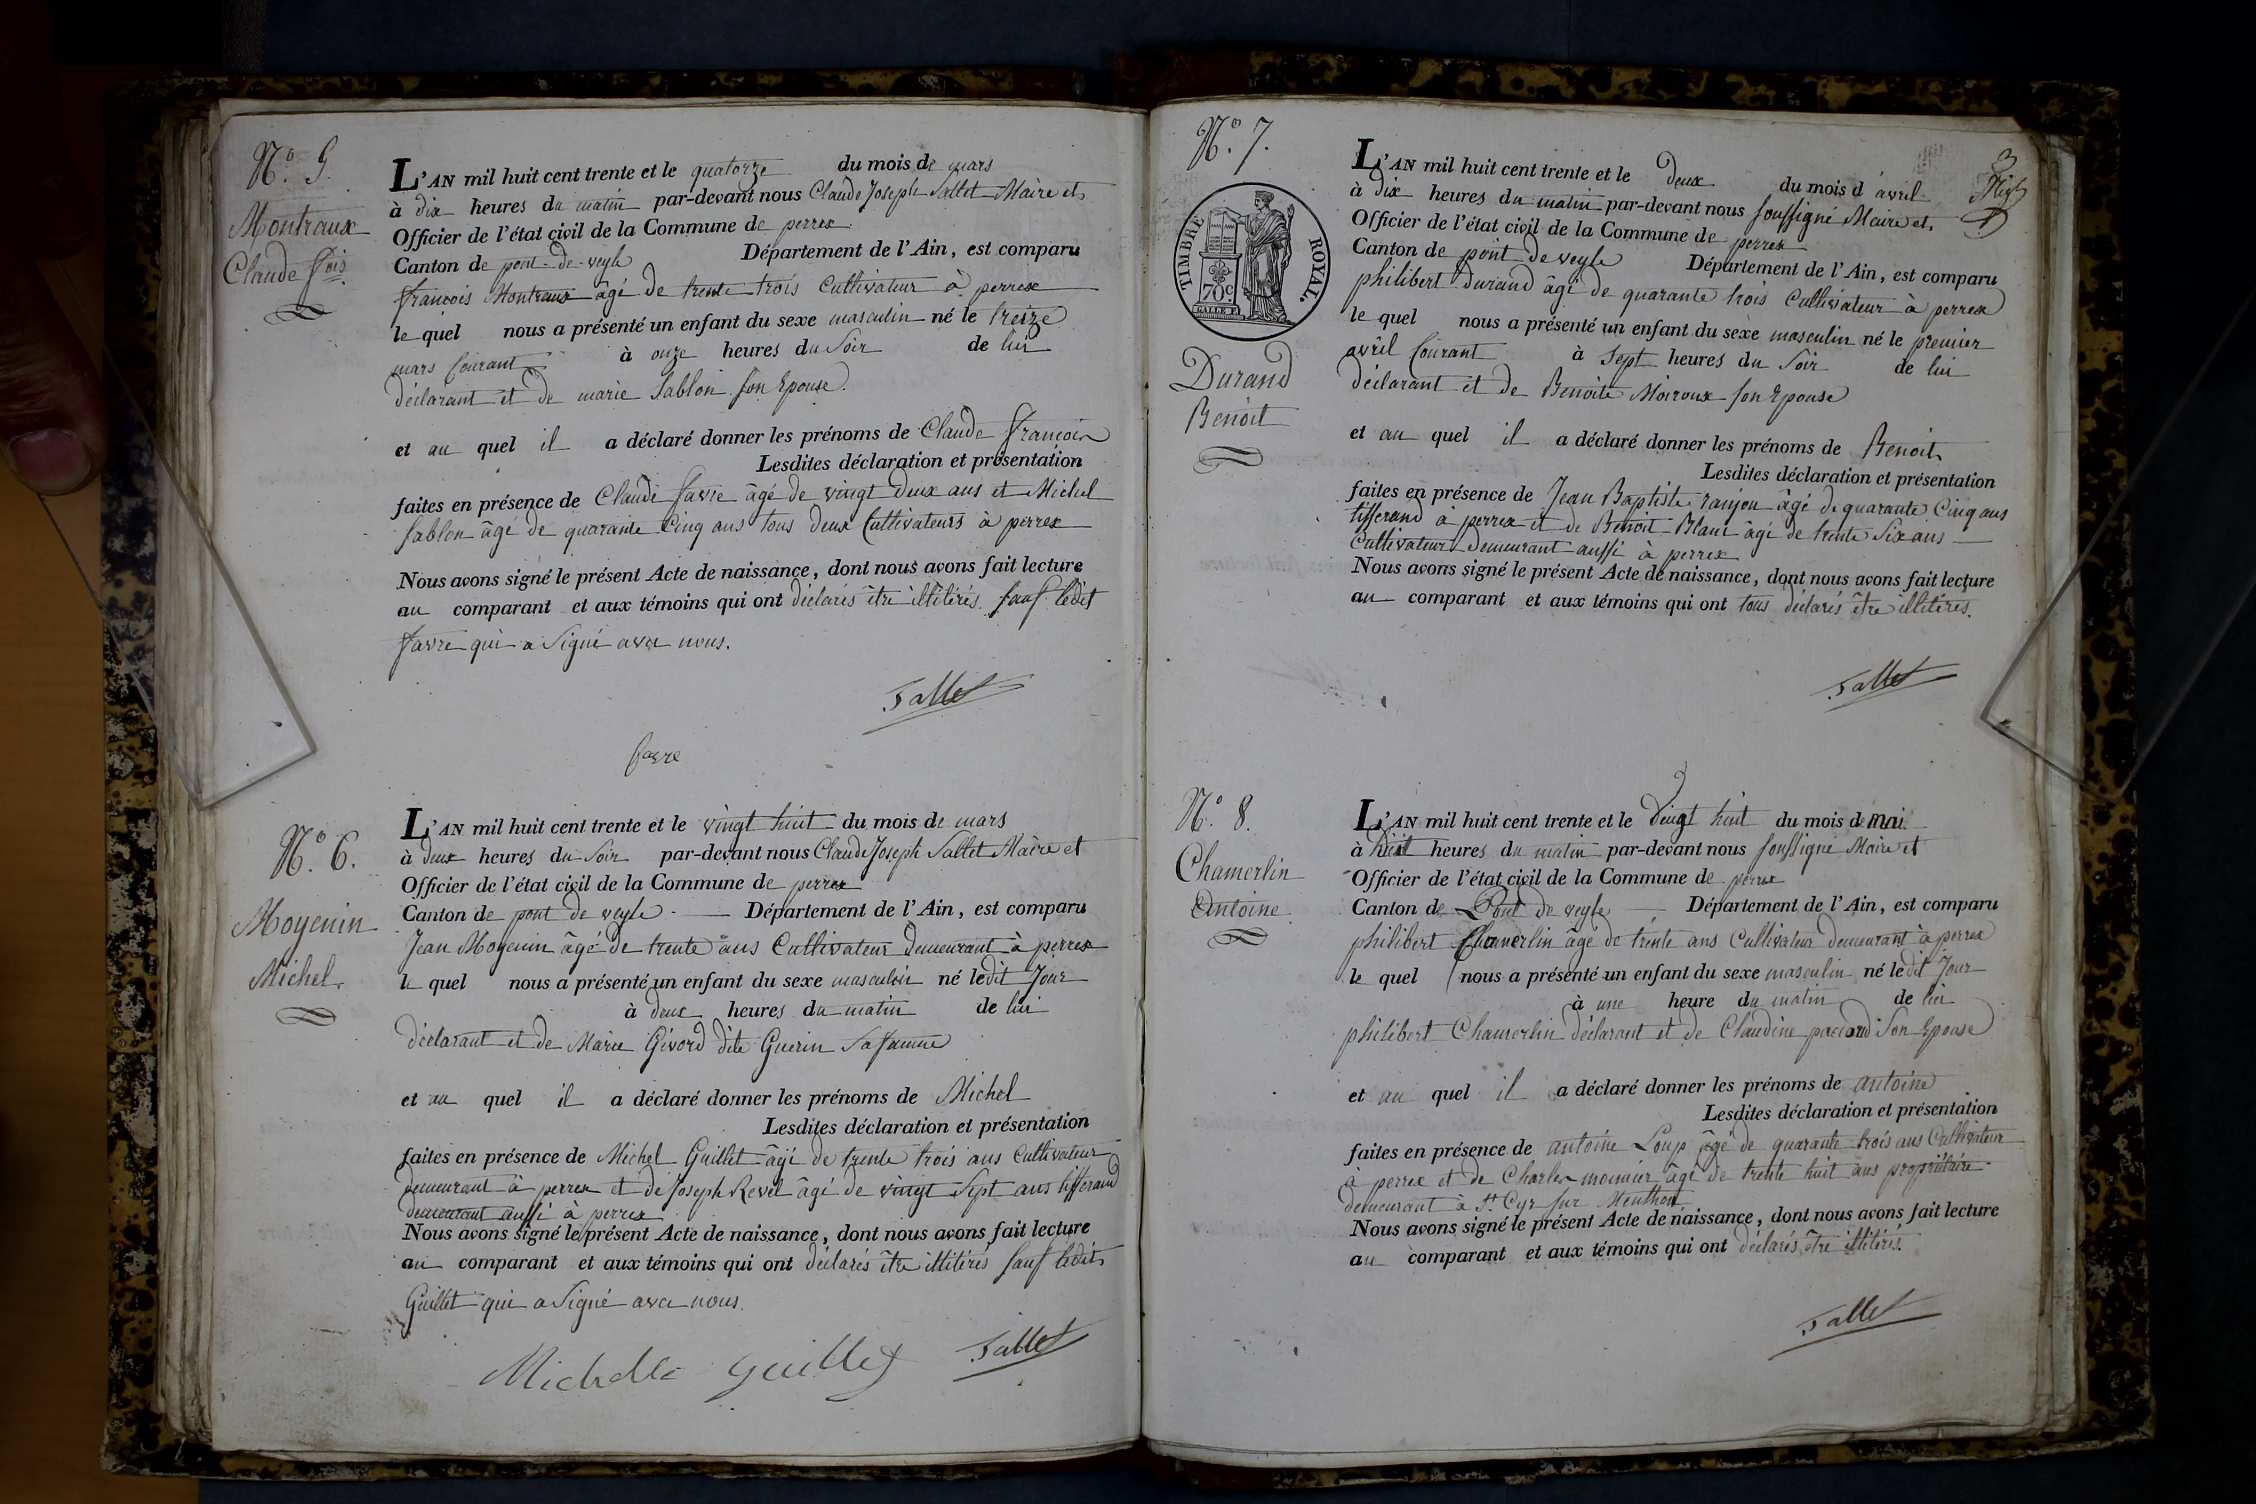 N.° 5.
Montraux
Claude f.ois
L'AN mil huit cent trente et le quatorze du mois de mars
à dix heures du matin par-devant nous Claude Joseph Sallet Maire et
Officier de l'état civil de la Commune de perrex
Canton de pont-de-veyle Département de l'Ain, est comparu
françois Montraux âgé de trente trois Cultivateur à perrex
le quel nous a présenté un enfant du sexe masculin né le treize
mars Courant à onze heures du Soir de lui
déclarant et de marie Sablon son Epouse.
et au quel il a déclaré donner les prénoms de Claude françois
Lesdites déclaration et présentation
faites en présence de Claude favre âgé de vingt deux ans et Michel
Sablon âgé de quarante Cinq ans tous deux Cultivateurs à perrex
Nous avons signé le présent Acte de naissance, dont nous avons fait lecture
au comparant et aux témoins qui ont déclarés être illitérés sauf ledit
favre qui a Signé avec nous.
Sallet
favre
N.° 6.
Moyenin
Michel.
L'AN mil huit cent trente et le vingt huit du mois de mars
à deux heures du Soir par-devant nous Claude Joseph Sallet Maire et
Officier de l'état civil de la Commune de perrex
Canton de pont de veyle Département de l'Ain, est comparu
Jean Moyenin âgé de trente ans Cultivateur demeurant à perrex
le quel nous a présenté un enfant du sexe masculin né ledit Jour
à deux heures du matin de lui
déclarant et de Marie Givord dite Guerin Sa femme
et au quel il a déclaré donner les prénoms de Michel
Lesdites déclaration et présentation
faites en présence de Michel Guillet âgé de trente trois ans Cultivateur
demeurant à perrex et de Joseph Revel âgé de vingt Sept ans tisserand
demeurant aussi à perrex
Nous avons signé le présent Acte de naissance, dont nous avons fait lecture
au comparant et aux témoins qui ont déclarés être illitérés sauf ledit
Guillet qui a Signé avec nous.
Guillet Sallet
N.° 7.
TIMBRE ROYAL.
70c.
Durand
Benoit
3
L'AN mil huit cent trente et le deux du mois d'avril
à dix heures du matin par-devant nous soussigné Maire et
Officier de l'état civil de la Commune de perrex
Canton de pont de veyle Département de l'Ain, est comparu
philibert Durand âgé de quarante trois Cultivateur à perrex
le quel nous a présenté un enfant du sexe masculin né le premier
avril Courant à Sept heures du Soir de lui
déclarant et de Benoite Moiroux son Epouse
et au quel il a déclaré donner les prénoms de Benoit
Lesdites déclaration et présentation
faites en présence de Jean Baptiste ranjon âgé de quarante Cinq ans
tisserand à perrex et de Benoit Blanc âgé de trente Six ans
Cultivateur demeurant aussi à perrex
Nous avons signé le présent Acte de naissance, dont nous avons fait lecture
au comparant et aux témoins qui ont tous déclarés être illitérés.
Sallet
N.° 8.
Chamerlin
Antoine.
L'AN mil huit cent trente et le Vingt huit du mois de mai
à huit heures du matin par-devant nous soussigné Maire et
Officier de l'état civil de la Commune de perrex
Canton de Pont de veyle Département de l'Ain, est comparu
philibert Chamerlin âgé de trente ans Cultivateur demeurant à perrex
le quel nous a présenté un enfant du sexe masculin né ledit Jour
à une heure du matin de lui
philibert Chamerlin déclarant et de Claudine Son Epouse
et au quel il a déclaré donner les prénoms de antoine
Lesdites déclaration et présentation
faites en présence de antoine Loup âgé de quarante trois ans Cultivateur
à perrex et de Charles monnier âgé de trente huit ans propriétaire
demeurant à St. Cyr sur Menthon
Nous avons signé le présent Acte de naissance, dont nous avons fait lecture
au comparant et aux témoins qui ont déclarés être illitérés.
Sallet